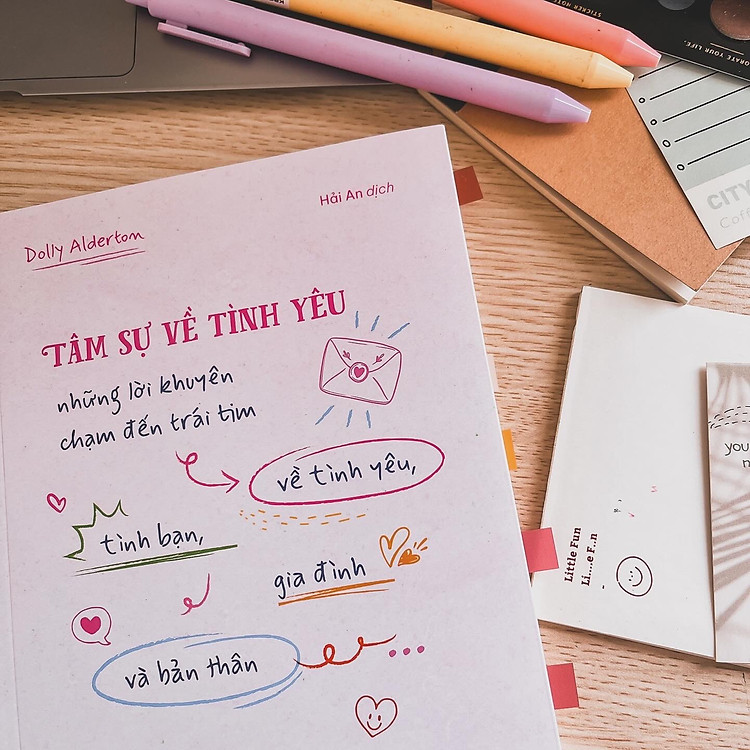 Dolly Alderton
Hải An dịch
TÂM SỰ VỀ TÌNH YÊU
những lời khuyên
chạm đến trái tim
về tình yêu,
tình bạn,
gia đình
và bản thân
...
STICKER
ORATE YOUR LIFE.
CITY
Little Fun
Li....e F..n
you